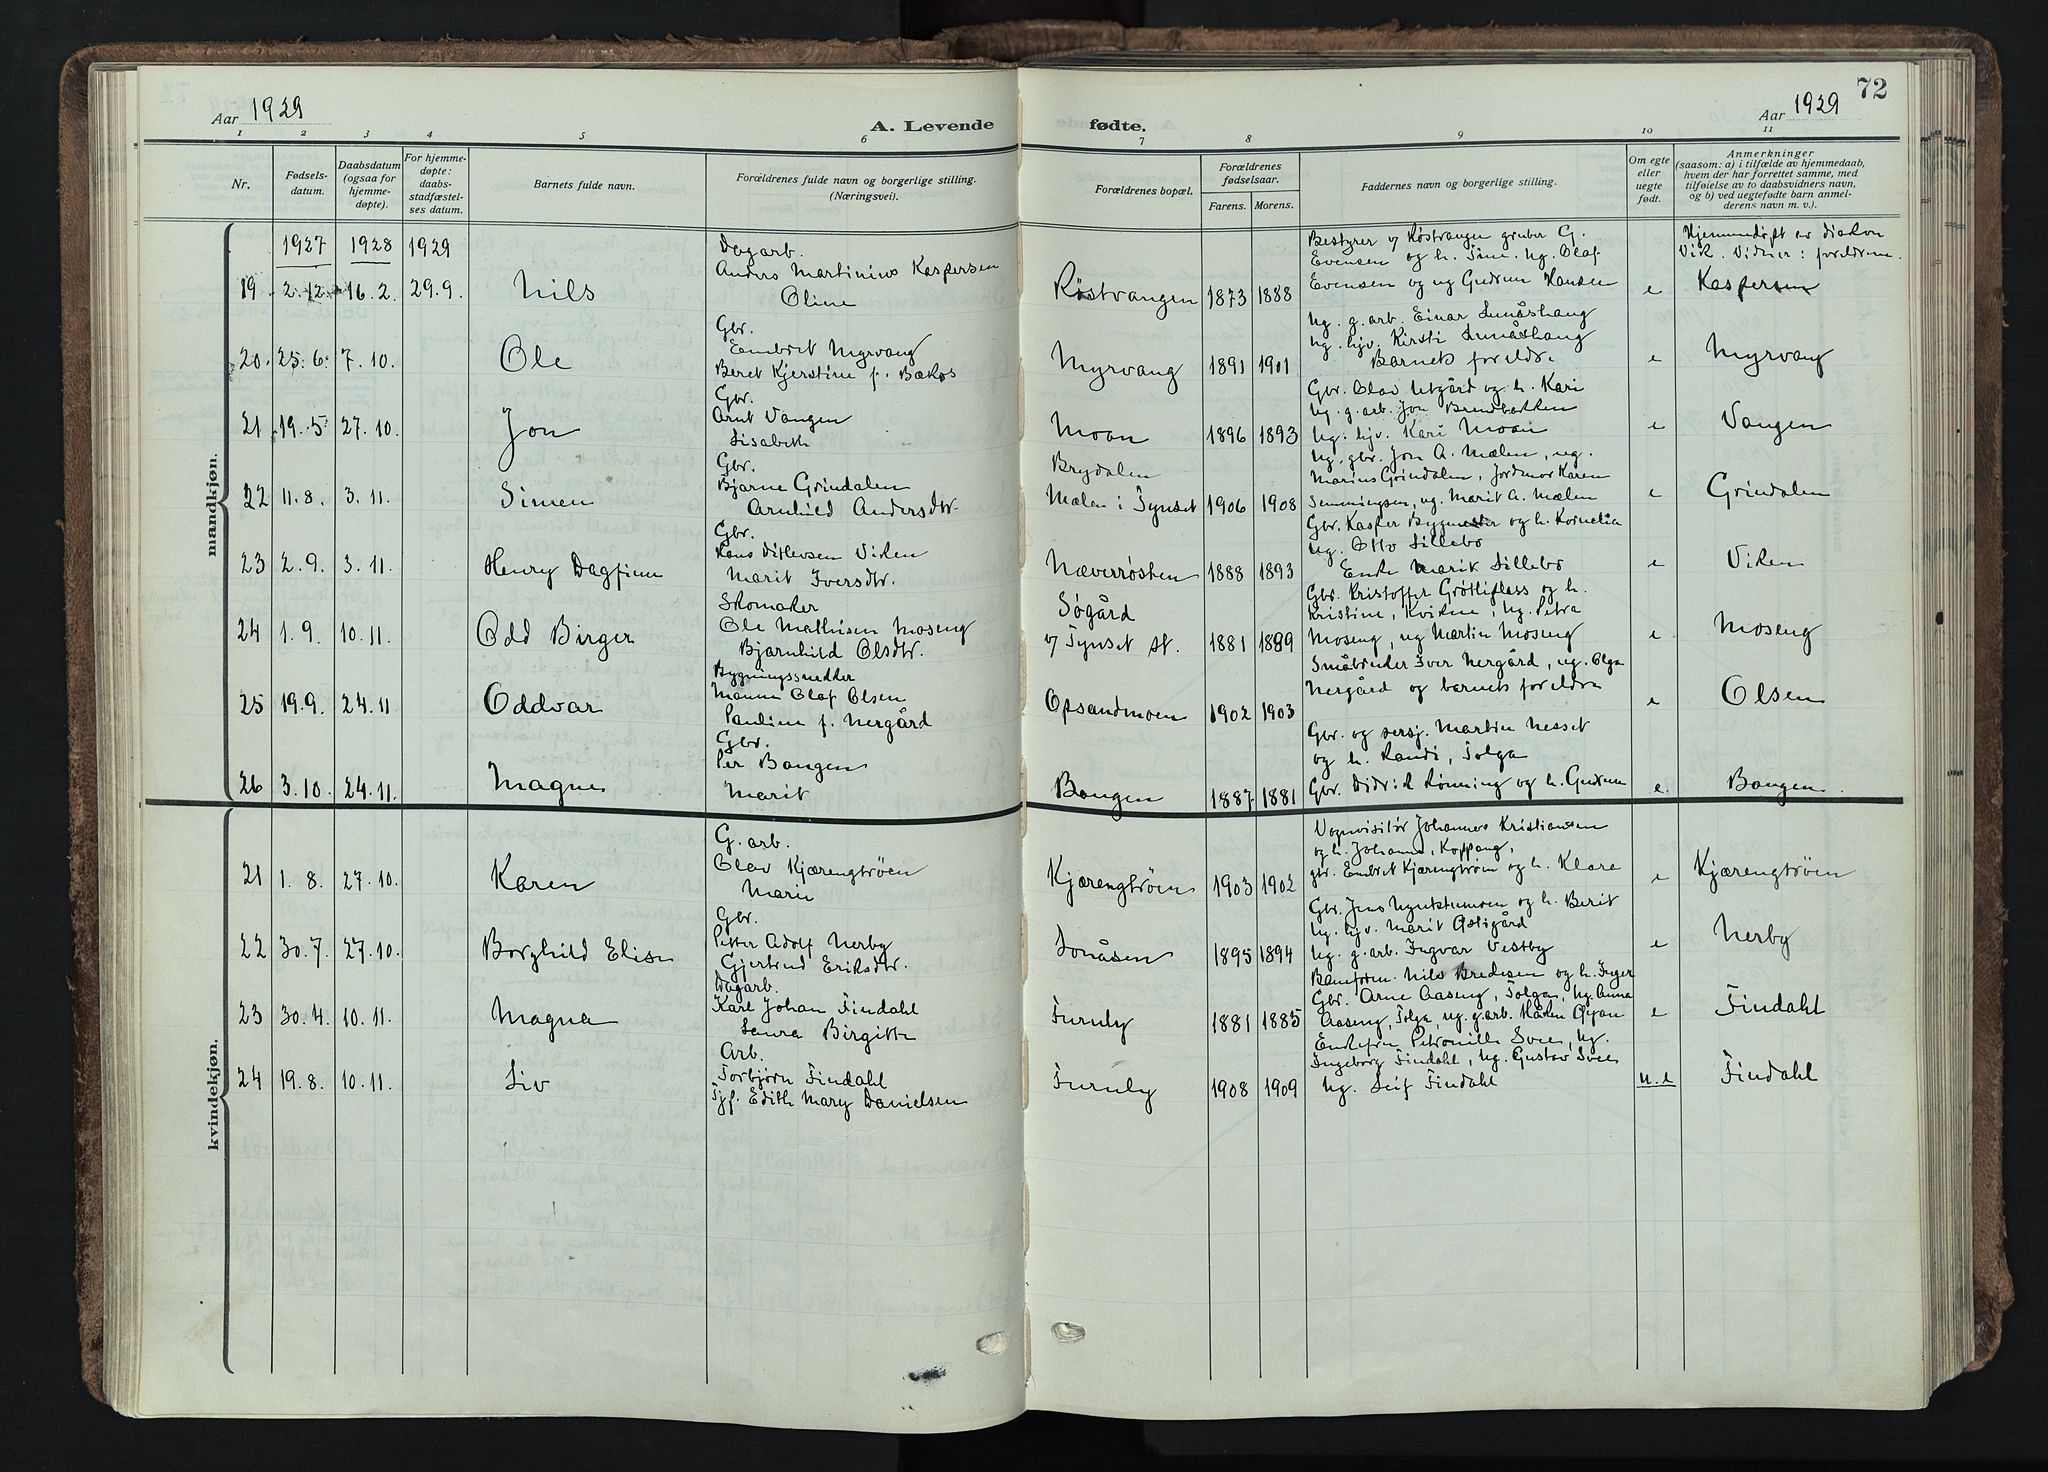 Aar 1929
A. Levende
fødte.
Aar 1929
72
1 2 3 4 5 6 7 8 9 10 11
Nr.
Fødsels-
datum.
Daabsdatum
(ogsaa for
hjemme-
døpte).
For hjemme-
døpte:
daabs-
stadfæstel-
ses datum.
Barnets fulde navn.
Forældrenes fulde navn og borgerlige stilling.
(Næringsvei).
Forældrenes bopæl.
Forældrenes
fødselsaar.
Farens. Morens.
Faddernes navn og borgerlige stilling.
Om egte
eller
uegte
født.
Anmerkninger
(saasom: a) i tilfælde av hjemmedaab,
hvem der har forrettet samme, med
tilføielse av to daabsvidners navn,
og b) ved uegtefødte barn anmel-
derens navn m. v.).
mandkjøn.
1927 1928 1929
19 2.12. 16.2. 29.9. Nils
Dagarb.
Anders Martinius Kaspersen
Oline
Røstvangen 1873 1888
Bestyrer v/ Røstvangen gruber G.
Evensen og h. Fine. Ug. Olaf
Evensen og ug Gudrun Hansen
e
Hjemmedøpt av diakon
Vik. Vidner: foreldrene.
Kaspersen
20. 25.6. 7.10. Ole
Gbr.
Embret Myrvang
Beret Kjerstine f. Bækos
Myrvang 1891 1901
Ug. g. arb. Einar Lunåshaug
Ug. hjv. Kirsti Lunåshaug
Barnets foreldre
e Myrvang
21 19.5 27.10. Jon
Gbr.
Arnt Vangen
Lisabeth
Moan 1896 1893
Gbr. Olav Utgård og h. Kari
Ug. g. arb. Jon Brendbakken
Ug. hjv. Kari Moan
e Vangen
22 11.8. 3.11. Simen
Gbr.
Bjarne Grindalen
Arnhild Andersdtr.
Brydalen
Mælen i Tynset 1906 1908
Ug. gbr. Jon A. Mælen, ug.
Marius Grindalen, Jordmor Karen
Semmingsen, ug. Marit A. Mælen
e Grindalen
23 2.9. 3.11. Henry Dagfinn
Gbr.
Hans Ditlevsen Viken
Marit Iversdtr.
Næverrøsten 1888 1893
Gbr. Kasper Bygmester og h. Kornelia
Ug. Otto Lillebo
Enke Marit Lillebo
e Viken
24 1.9. 10.11. Odd Birger
Skomaker
Ole Mathisen Moseng
Bjarnhild Olsdtr.
Søgård
v/ Tynset st. 1881 1889
Gbr. Kristoffer Grøtliplass og h.
Kristine, Kvikne, Ug. Petra
Moseng, ug Martin Moseng
e Moseng
25 19.9. 24.11 Oddvar
Bygningssnedker
Manne Olaf Olsen
Pauline f. Nergård
Opsandmoen 1902 1903
Småbruker Iver Nergård, ug. Olga
Nergård og barnets foreldre
e Olsen
26 3.10. 24.11. Magne
Gbr.
Per Bangen
Marit
Bangen 1887 1881
Gbr. og sersj. Martin Nesset
og h. Randi, Tolga
Gbr. Didrik Rønning og h. Gudrun
e. Bangen.
kvindekjøn.
21 1.8. 27.10. Karen
G. arb.
Olav Kjærengtrøen
Marie
Kjærengtrøen 1903 1902
Vognvisitør Johannes Kristiansen
og h. Johanne, Koppang,
gbr. Embret Kjærengtrøen og h. Klare
e Kjærengtrøen
22 30.7. 27.10. Borghild Elise
Gbr.
Petter Adolf Nerby
Gjertrud Eriksdtr.
Lonåsen 1895 1894
Gbr. Jens Nyuktumoen og h. Berit
Ug. hjv. Marit Østigård
Ug. g. arb. Ingvar Vestby
e Nerby
23 30.4. 10.11. Magna
Dagarb.
Karl Johan Findahl
Laura Birgitte
Furuly 1881 1885
Baneform. Nils Bredesen og h. Inger
Gbr. Arne Aaseng, Tolga, Ug. Anna
Aaseng, Tolga, ug. g. arb. Håken Øyan
e Findahl
24 19.8. 10.11. Liv
Arb.
Torbjørn Findahl
Tjp. Edith Mary Danielsen
Furuly 1908 1909
Enkefru Petronille Svee, Ug.
Ingeborg Findahl, Ug. Gustav Svee
Ug. Leif Findahl
u.e Findahl